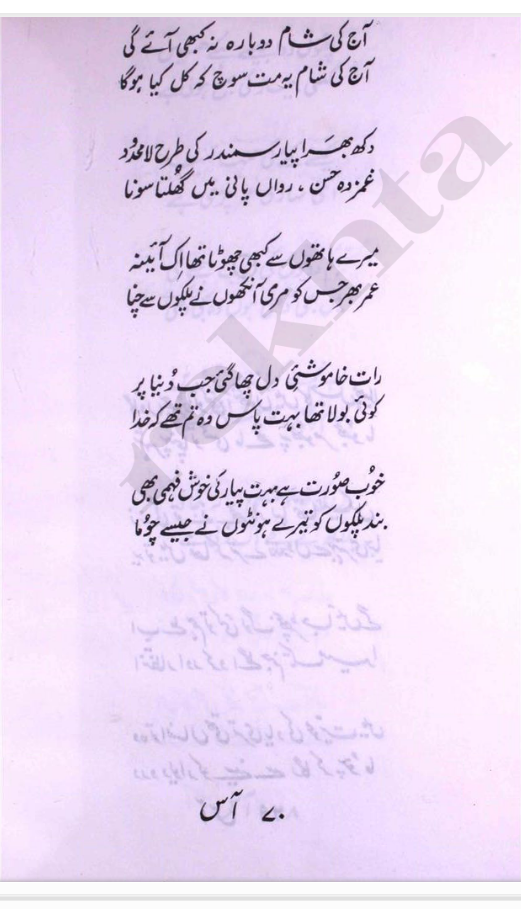 آج کی شام دوبارہ نہ کبھی آئے گی
آج کی شام یہ مت سوچ کہ کل کیا ہوگا
دکھ بھرا پیار سمندر کی طرح لامحدود
غمزدہ حسن، رواں پانی میں گھلتا سونا
میرے ہاتھوں سے کبھی چھوٹا تھا اک آئینہ
عمر بھر جس کو مری آنکھوں نے پلکوں سے چنا
رات خاموشئی دل چھا گئی جب دُنیا پر
کوئی بولا تھا بہت پاس وہ تم تھے کہ خدا
خوُب صوُرت ہے بہت پیار کی خوش فہمی بھی
بند پلکوں کو تیرے ہونٹوں نے جیسے چوُما
۷۰ آس
rekhta